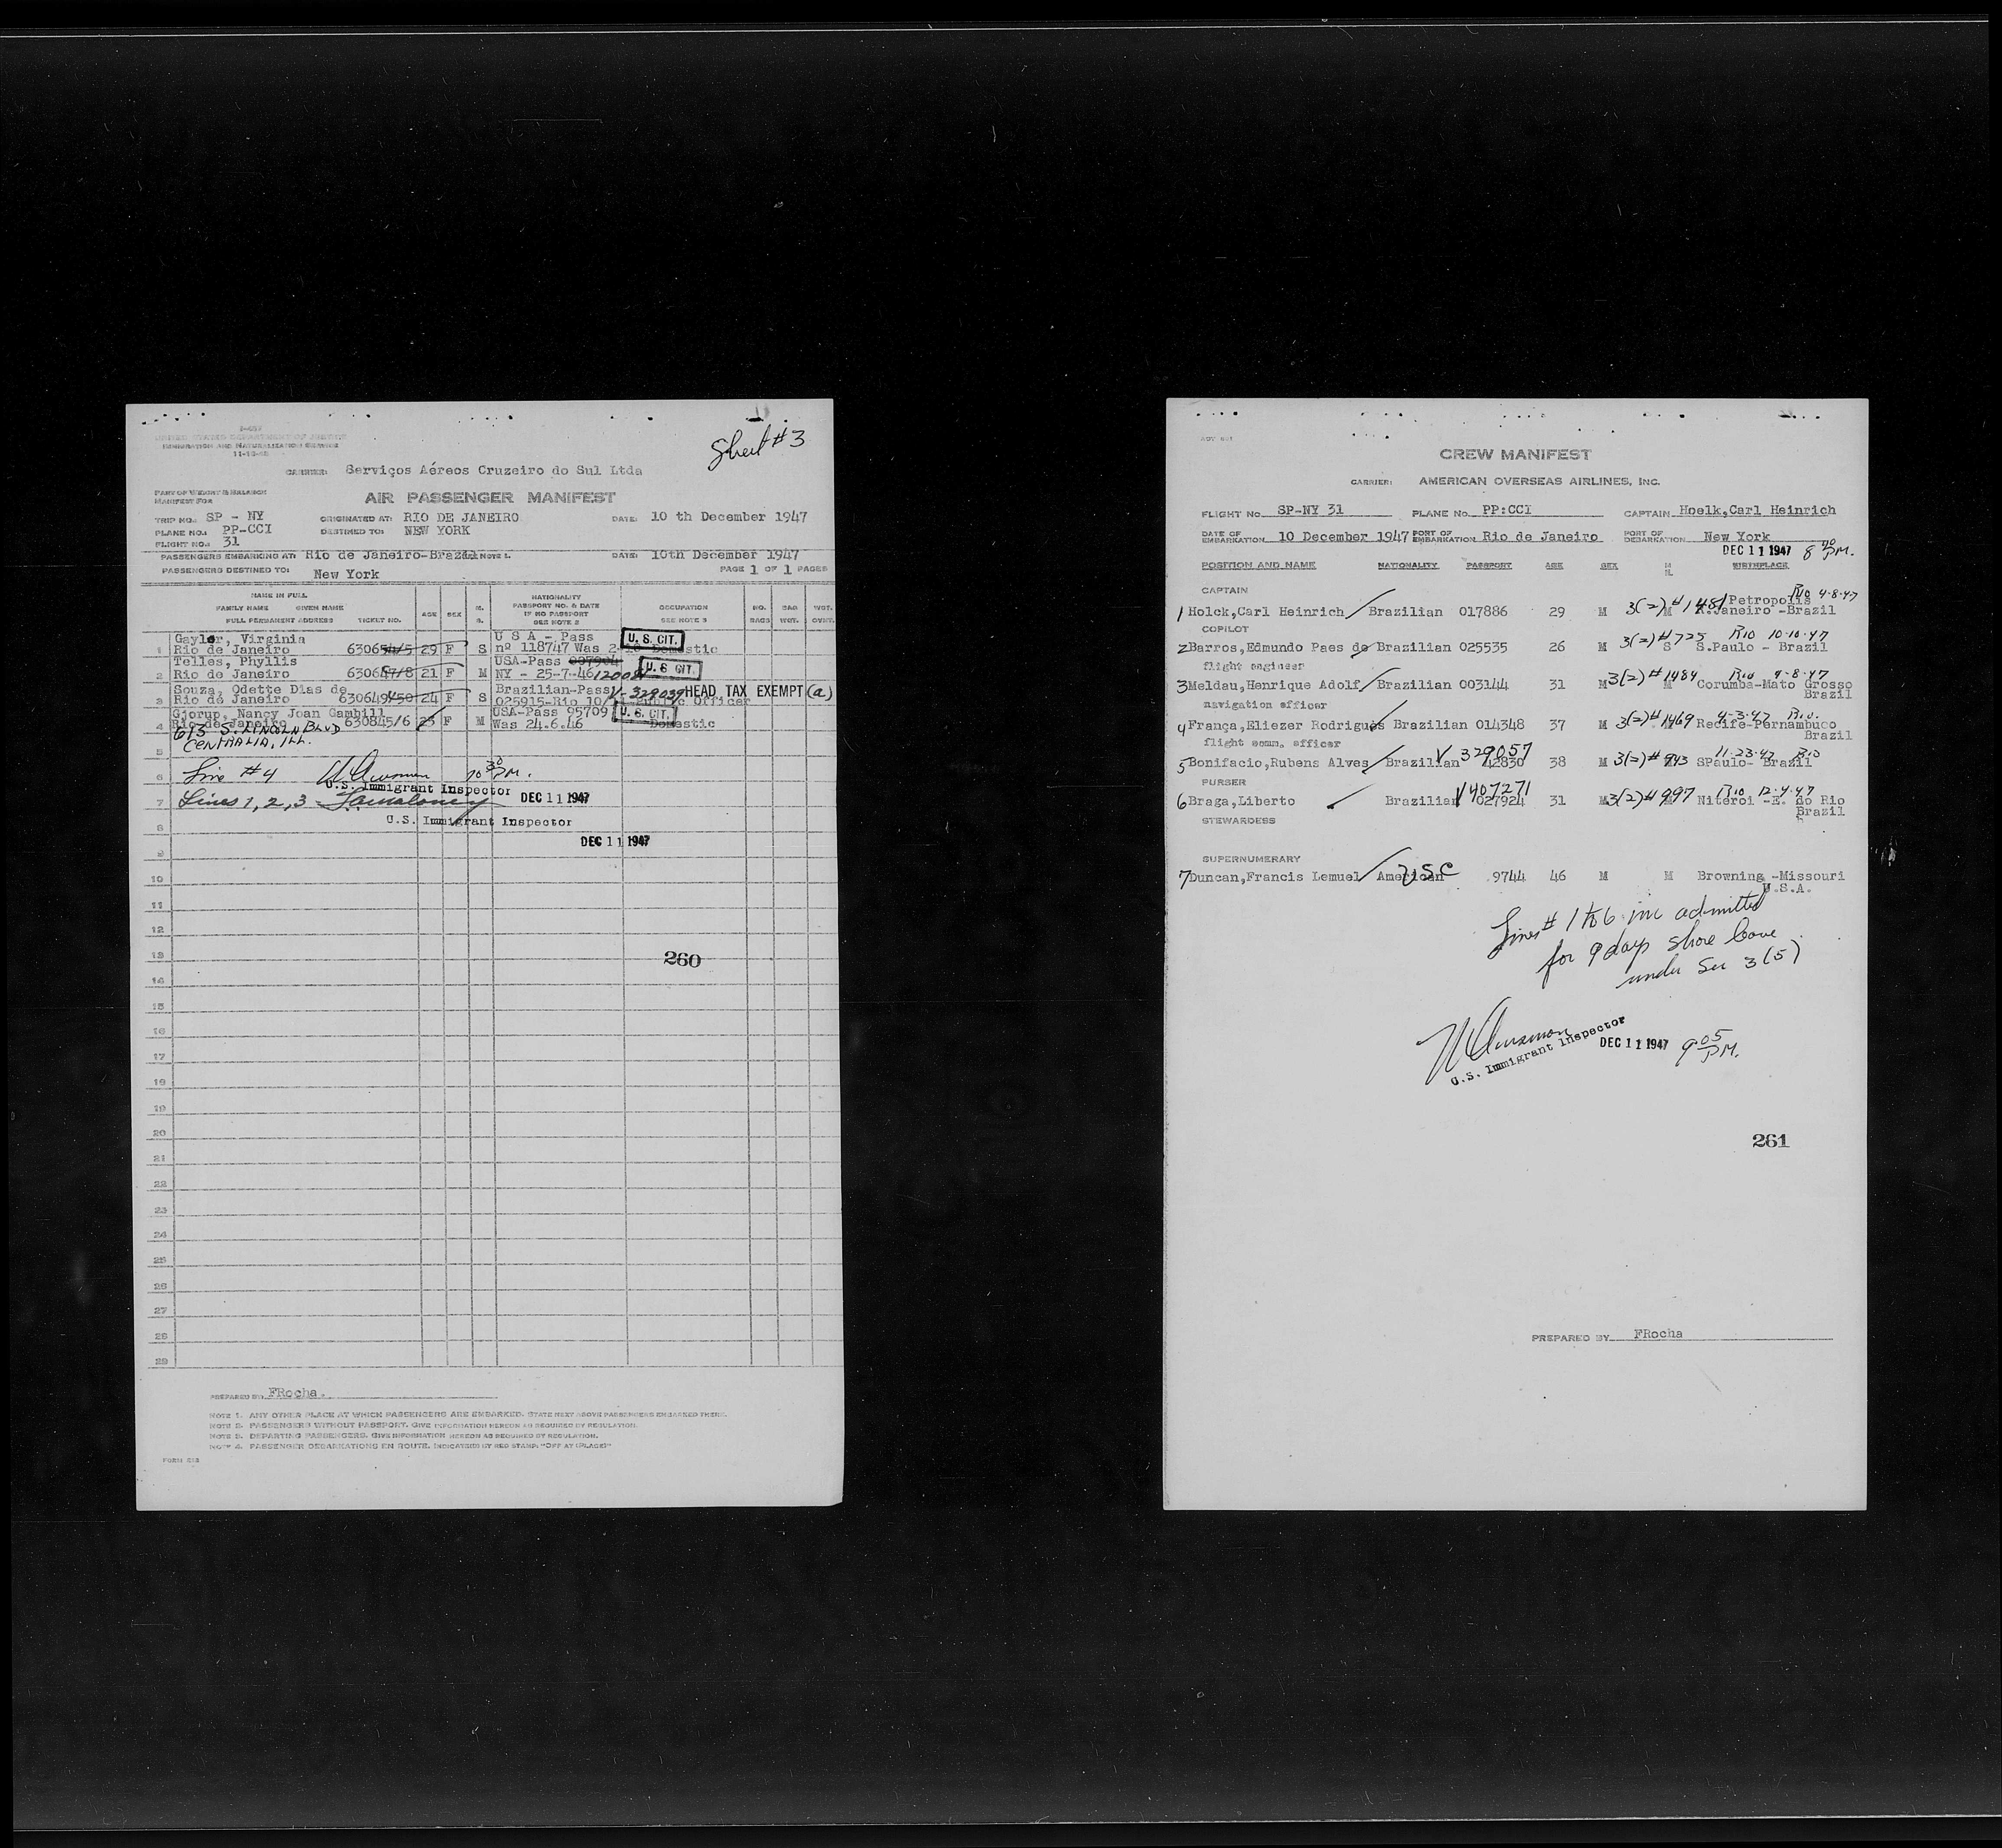 Sheet #3
I-457
UNITED STATES DEPARTMENT OF JUSTICE
IMMIGRATION AND NATURALIZATION SERVICE
CARRIER: Serviços Aéreos Cruzeiro do Sul Ltda
PART OF WEIGHT & BALANCE
MANIFEST FOR
AIR PASSENGER MANIFEST
TRIP NO. SP - NY ORIGINATED AT: RIO DE JANEIRO DATE: 10 th December 1947
PLANE NO. PP-CCI DESTINED TO: NEW YORK
FLIGHT NO. 31
PASSENGERS EMBARKING AT: Rio de Janeiro-Brazil NOTE 1. DATE: 10th December 1947
PASSENGERS DESTINED TO: New York PAGE 1 OF 1 PAGES
NAME IN FULL
FAMILY NAME GIVEN NAME
FULL PERMANENT ADDRESS TICKET NO. AGE SEX M. S. NATIONALITY PASSPORT NO. & DATE IF NO PASSPORT SEE NOTE 2 OCCUPATION SEE NOTE 3 NO. BAGS BAG WGT. WGT. OVWT.
Gayler, Virginia U S A - Pass U. S. CIT.
1 Rio de Janeiro 630654/5 29 F S nº 118747 Was Domestic
Telles, Phyllis USA-Pass 007904 U. S. CIT.
2 Rio de Janeiro 630647/8 21 F M NY - 25-7-46
Souza, Odette Dias de Brazilian-Pass V-329039 HEAD TAX EXEMPT (a)
3 Rio de Janeiro 630649/50 24 F S 025915-Rio Public Officer
Gjorup, Nancy Joan Gambill USA-Pass 95709 U. S. CIT.
4 Rio de Janeiro 630845/6 25 F M Was 24.6.46 Domestic
613 S. LINCOLN BLVD
CENTRALIA, ILL.
5
6 Line #4 10 30 PM.
U.S. Immigrant Inspector DEC 11 1947
7 Lines 1, 2, 3
U.S. Immigrant Inspector
8
DEC 11 1947
9
10
11
12
13 260
14
15
16
17
18
19
20
21
22
23
24
25
26
27
28
29
PREPARED BY: FRocha.
NOTE 1. ANY OTHER PLACE AT WHICH PASSENGERS ARE EMBARKED. STATE NEXT ABOVE PASSENGERS EMBARKED THERE.
NOTE 2. PASSENGERS WITHOUT PASSPORT. GIVE INFORMATION HEREON AS REQUIRED BY REGULATION.
NOTE 3. DEPARTING PASSENGERS. GIVE INFORMATION HEREON AS REQUIRED BY REGULATION.
NOTE 4. PASSENGER DEBARKATIONS EN ROUTE. INDICATED BY RED STAMP. "OFF AT (PLACE)"
CREW MANIFEST
CARRIER: AMERICAN OVERSEAS AIRLINES, INC.
FLIGHT No. SP-NY 31 PLANE No. PP:CCI CAPTAIN Hoelk,Carl Heinrich
DATE OF EMBARKATION 10 December 1947 PORT OF EMBARKATION Rio de Janeiro PORT OF DEBARKATION New York
DEC 11 1947 8 PM.
POSITION AND NAME NATIONALITY PASSPORT AGE SEX M S. BIRTHPLACE
CAPTAIN Petropolis Rio 4-8-47
1 Holck,Carl Heinrich Brazilian 017886 29 M 3(2) #1481 M R.Janeiro -Brazil
COPILOT
2 Barros,Edmundo Paes de Brazilian 025535 26 M 3(2) #725 S S.Paulo - Brazil Rio 10-10-47
flight engineer
3 Meldau,Henrique Adolf Brazilian 003144 31 M 3(2) #1484 M Corumba-Mato Grosso Brazil Rio 9-8-47
navigation officer
4 França,Eliezer Rodrigues Brazilian 014348 37 M 3(2) #1469 Recife-Pernambuco Brazil 4-3-47 Rio
flight comm. officer V 329057
5 Bonifacio,Rubens Alves Brazilian 42830 38 M 3(2) #943 SPaulo- Brazil 11-23-47 Rio
PURSER V 407271
6 Braga,Liberto Brazilian 027924 31 M 3(2) #997 Niteroi -E. do Rio Brazil Rio 12-4-47
STEWARDESS
SUPERNUMERARY
7 Duncan,Francis Lemuel American USC 9744 46 M M Browning -Missouri
U.S.A.
Lines # 1 to 6 inc admitted
for 9 days shore leave
under Sec 3(5)
U.S. Immigrant Inspector DEC 11 1947 9 05 PM.
261
PREPARED BY FRocha